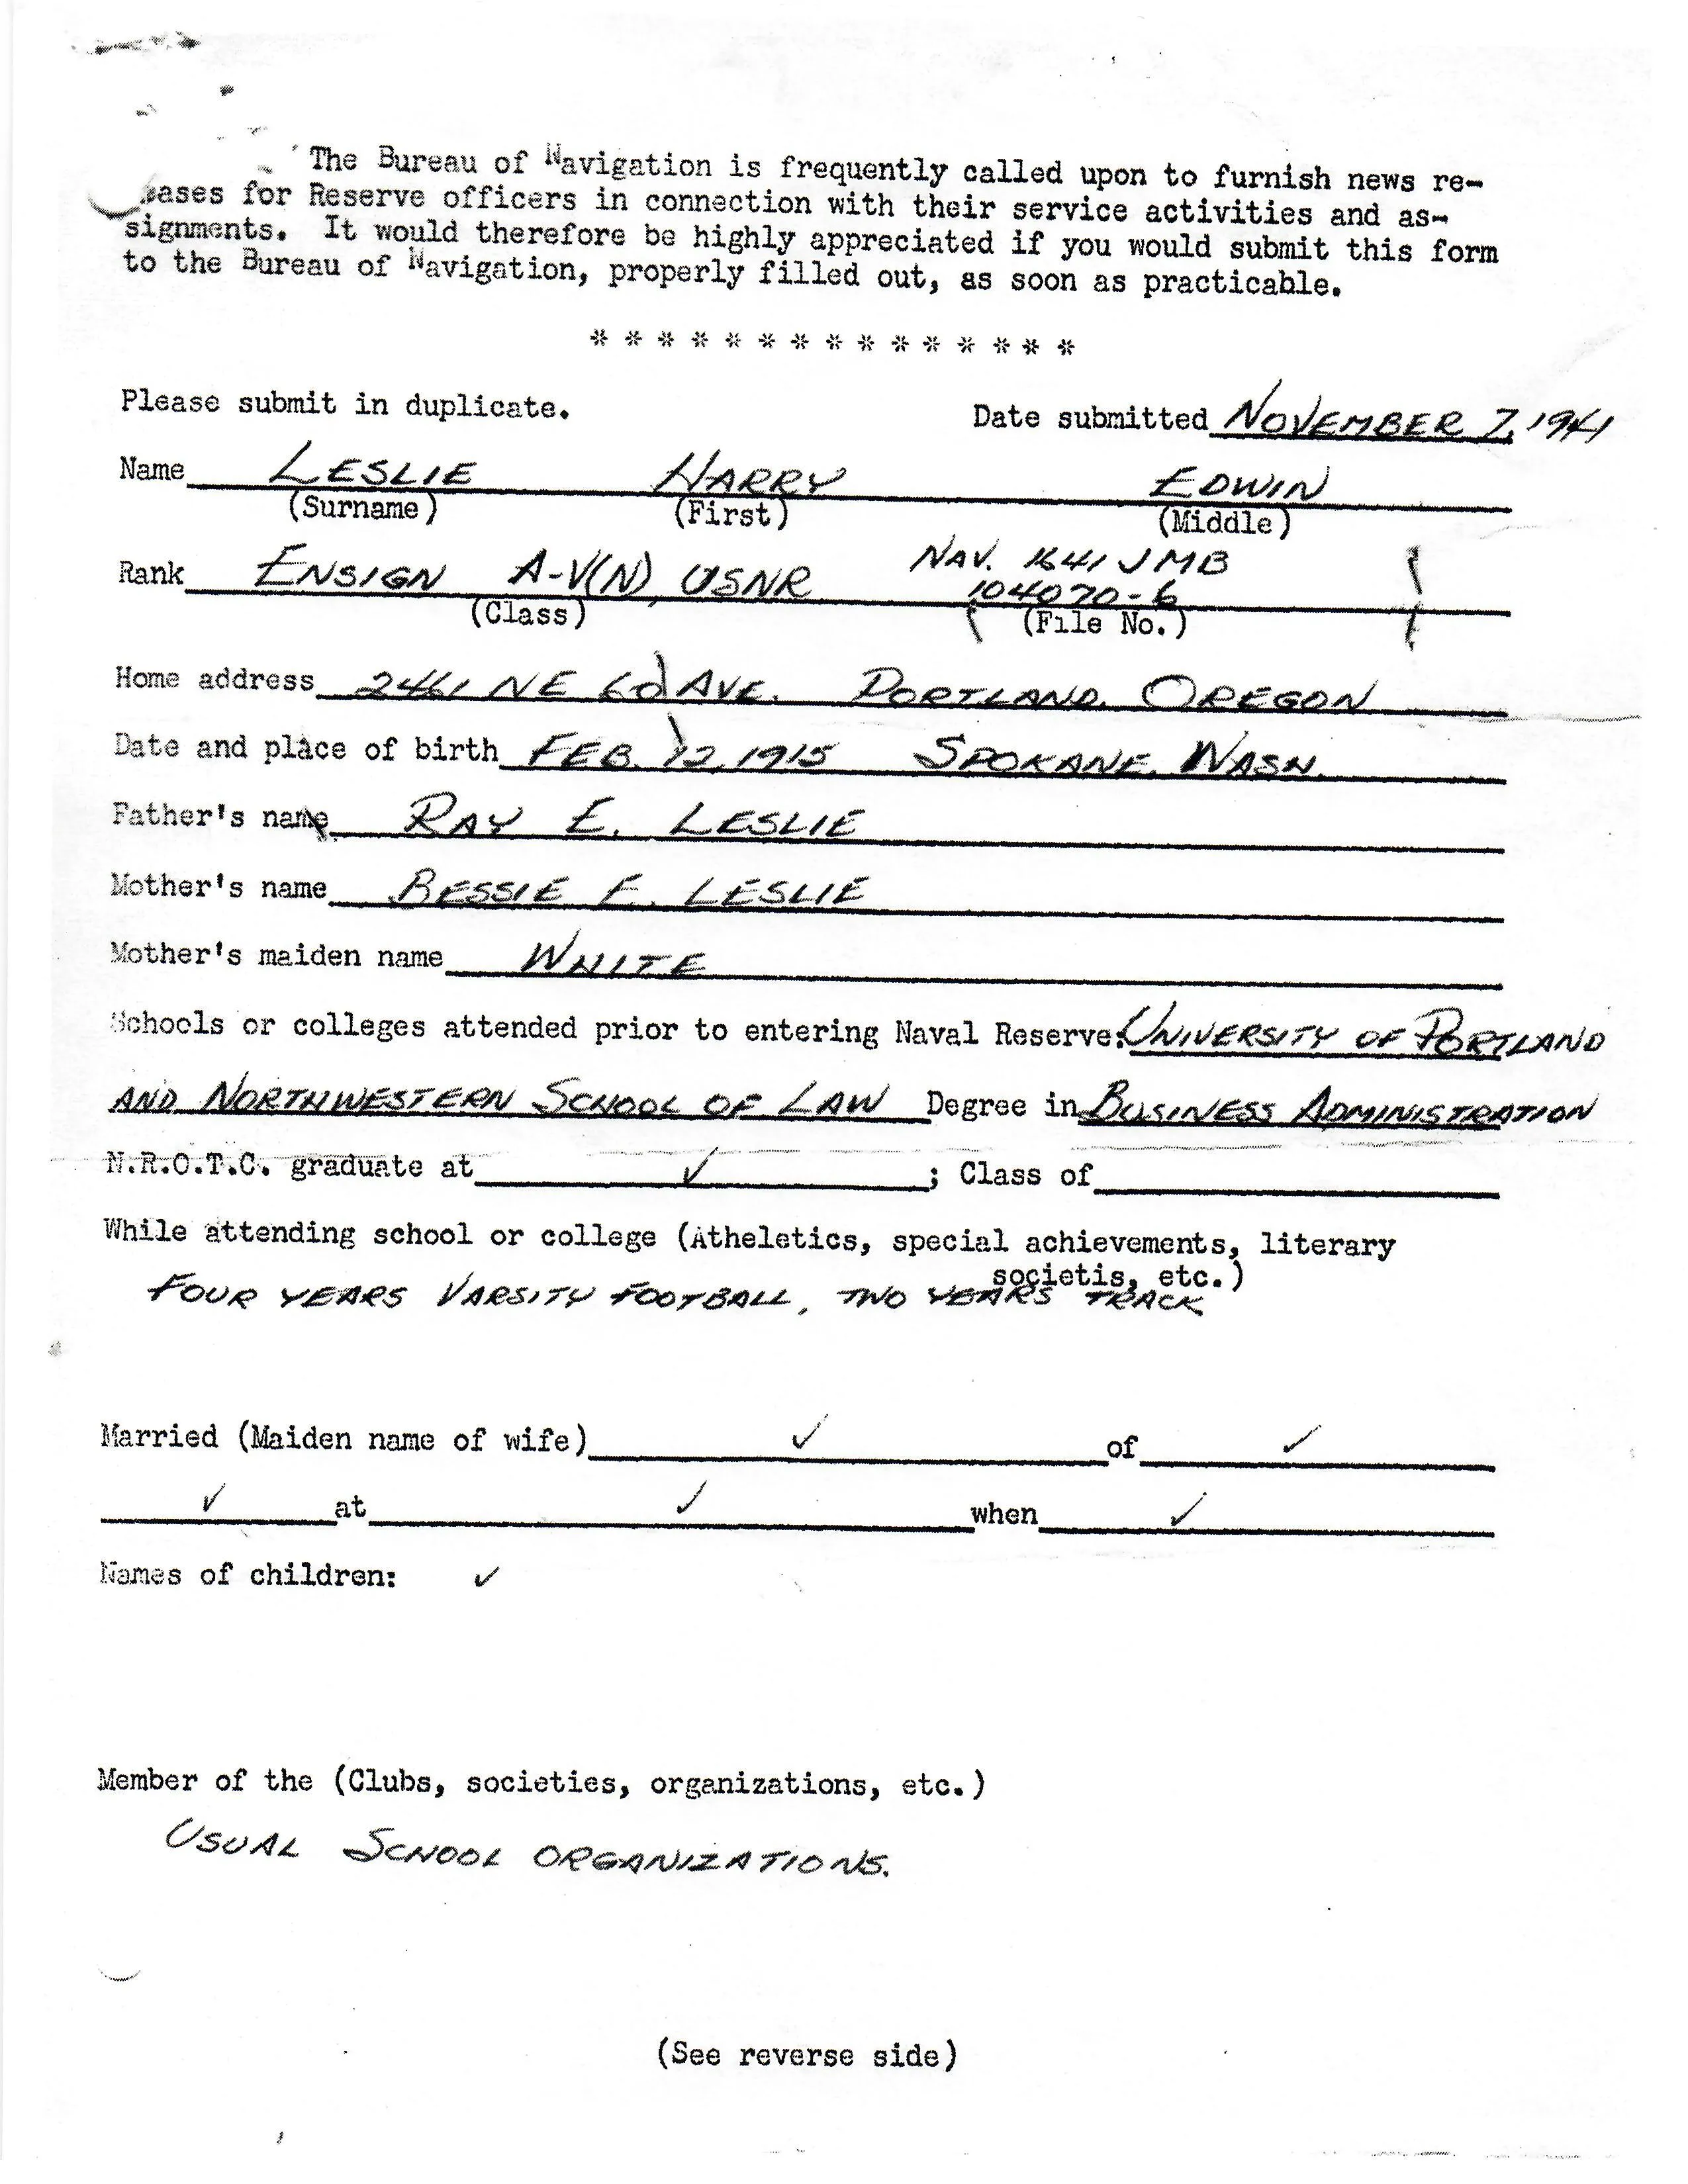 The Bureau of Navigation is frequently called upon to furnish news re-
eases for Reserve officers in connection with their service activities and as-
signments. It would therefore be highly appreciated if you would submit this form
to the Bureau of Navigation, properly filled out, as soon as practicable.
* * * * * * * * * * * * * * *
Please submit in duplicate. Date submitted NOVEMBER 7, 1941
Name LESLIE HARRY EDWIN
(Surname) (First) (Middle)
Rank ENSIGN A-V(N), USNR NAV. 1641 JMB
104070-6
(Class) (File No.)
Home address 2461 NE 60 AVE. PORTLAND, OREGON
Date and place of birth FEB. 12, 1915 SPOKANE, WASH.
Father's name RAY E. LESLIE
Mother's name BESSIE F. LESLIE
Mother's maiden name WHITE
Schools or colleges attended prior to entering Naval Reserve: UNIVERSITY OF PORTLAND
AND NORTHWESTERN SCHOOL OF LAW Degree in BUSINESS ADMINISTRATION
N.R.O.T.C. graduate at ✓ ; Class of
While attending school or college (Atheletics, special achievements, literary
societis, etc.)
FOUR YEARS VARSITY FOOTBALL, TWO YEARS TRACK
Married (Maiden name of wife) ✓ of ✓
✓ at ✓ when ✓
Names of children: ✓
Member of the (Clubs, societies, organizations, etc.)
USUAL SCHOOL ORGANIZATIONS.
(See reverse side)